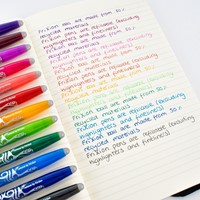 Frixion bas are made from 30%
recycled materials
Frixion pens are refillable (excluding
highlighters and fineliners!)
Frixion bas are made from 30%
recycled materials
Frixion pens are refillable (excluding
highlighters and fineliners!)
Frixion bas are made from 30%
recycled materials
Frixion pens are refillable (excluding
highlighters and fineliners!)
Frixion bas are made from 30%
recycled materials
Frixion pens are refillable (excluding
highlighters and fineliners!)